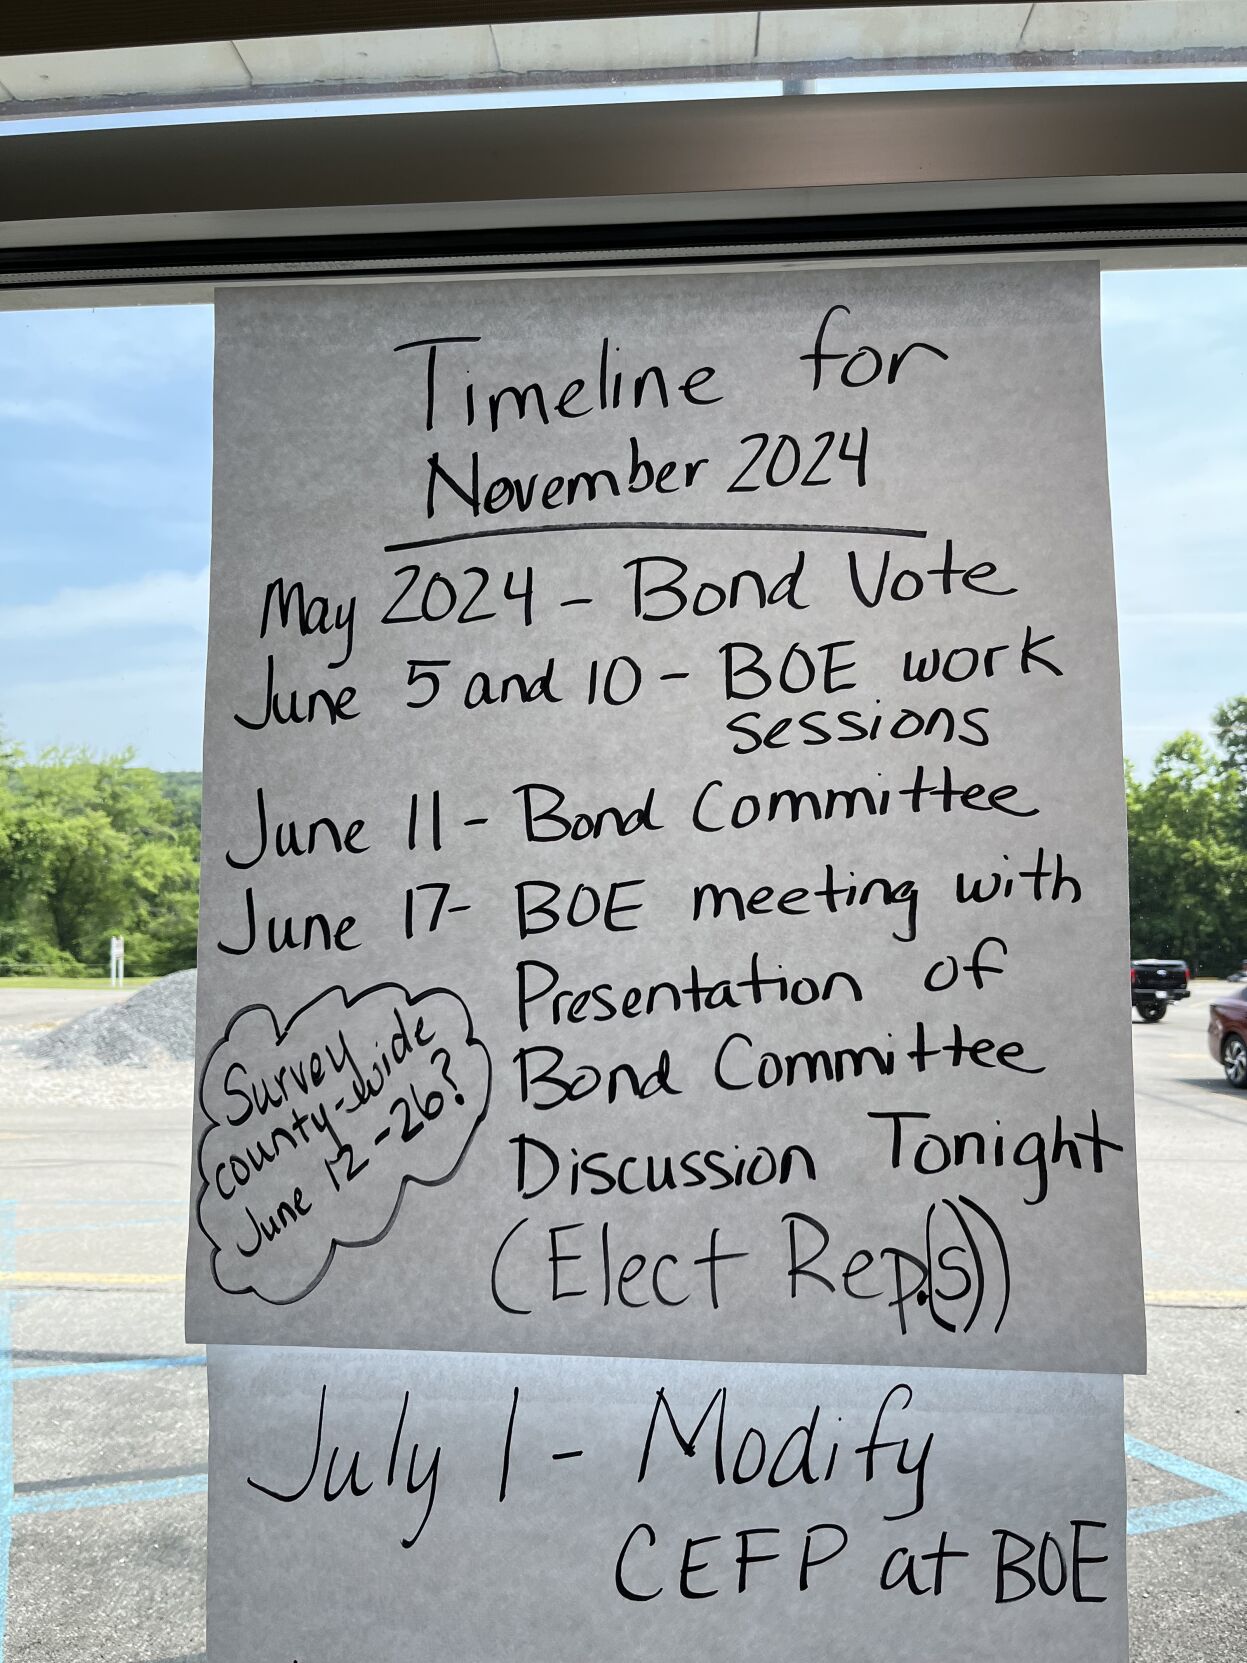 Timeline for
November 2024
May 2024 - Bond Vote
June 5 and 10 - BOE work
sessions
June 11 - Bond Committee
June 17- BOE meeting with
Presentation of
Bond Committee
Discussion Tonight
(Elect Rep.(s))
Survey
county-wide
June 12-26?
July 1 - Modify
CEFP at BOE